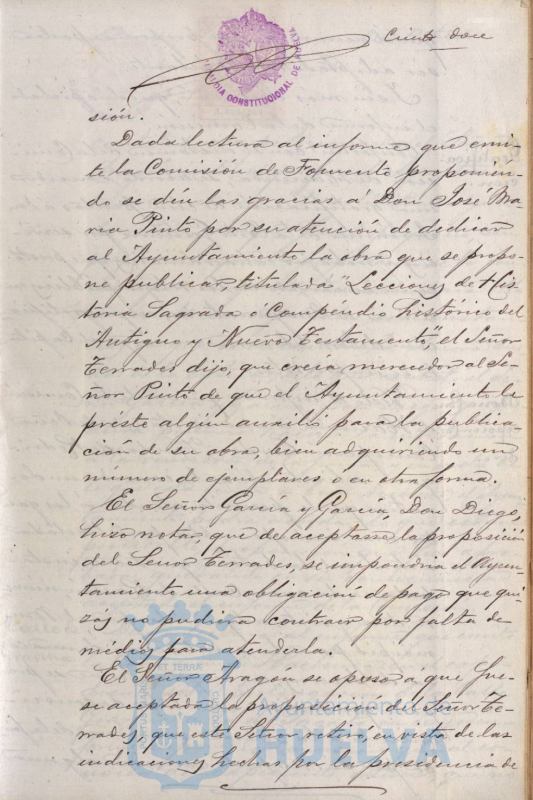 Ciento doce
ALCALDIA CONSTITUCIONAL DE HUELVA
sión.
Dada lectura al informe que emi-
te la Comisión de Fomento proponien-
do se dén las gracias á Don José Ma-
ria Pinto por su atención de dedicar
al Ayuntamiento la obra que se propo-
ne publicar, titulada "Lecciones de His-
toria Sagrada ó Compéndio histórico del
Antiguo y Nuevo Testamento", el Señor
Terrades dijo, que creía merecedor al Se-
ñor Pinto de que el Ayuntamiento le
préste algún auxilio para la publica-
ción de su obra, bien adquiriendo un
número de ejemplares ó en otra forma.
El Señor García y García, Don Diego,
hizo notar, que de aceptarse la proposición
del Señor Terrades, se impondria el Ayun-
tamiento una obligación de pago que qui-
zás no pudiera contraer por falta de
médios para atenderla.
El Señor Aragón se opuso á que fue-
se aceptada la proposición del Señor Te-
rrades, que este Señor retiró, en vista de las
indicaciones hechas por la presidencia de
Ayuntamiento de
HUELVA